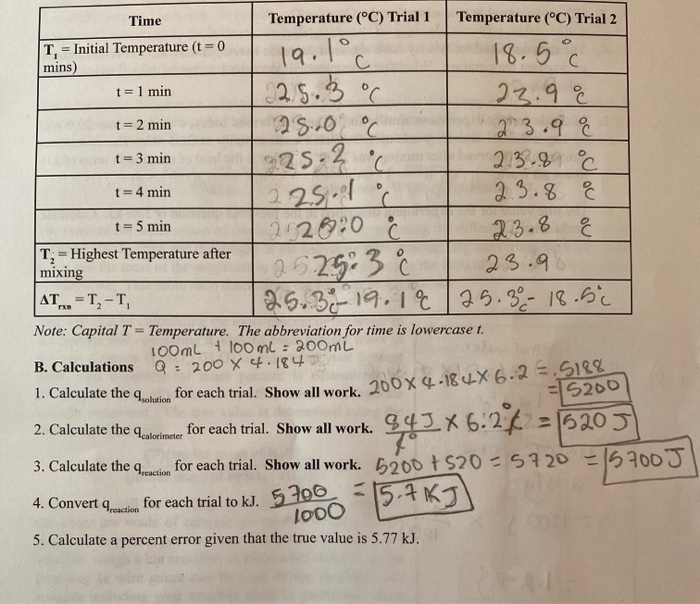 Time Temperature (°C) Trial 1 Temperature (°C) Trial 2
T₁ = Initial Temperature (t = 0 mins) 19.1°C 18.5°C
t = 1 min 25.3 °C 23.9 °C
t = 2 min 25.0 °C 23.9 °C
t = 3 min 25.2 °C 23.8 °C
t = 4 min 25.1 °C 23.8 °C
t = 5 min °C 23.8 °C
T₂ = Highest Temperature after mixing 25.3 °C 23.9
ΔTᵣₓₙ = T₂ – T₁ 25.3°C - 19.1°C 25.3°C - 18.5°C
Note: Capital T = Temperature. The abbreviation for time is lowercase t.
100mL + 100mL = 200mL
B. Calculations Q = 200 x 4.184
1. Calculate the q_solution for each trial. Show all work. 200 x 4.184 x 6.2 = 5188
= 5200
2. Calculate the q_calorimeter for each trial. Show all work. 84J/°C x 6.2°C = 520 J
3. Calculate the q_reaction for each trial. Show all work. 5200 + 520 = 5720 = 5700 J
4. Convert q_reaction for each trial to kJ. 5700/1000 = 5.7 KJ
5. Calculate a percent error given that the true value is 5.77 kJ.